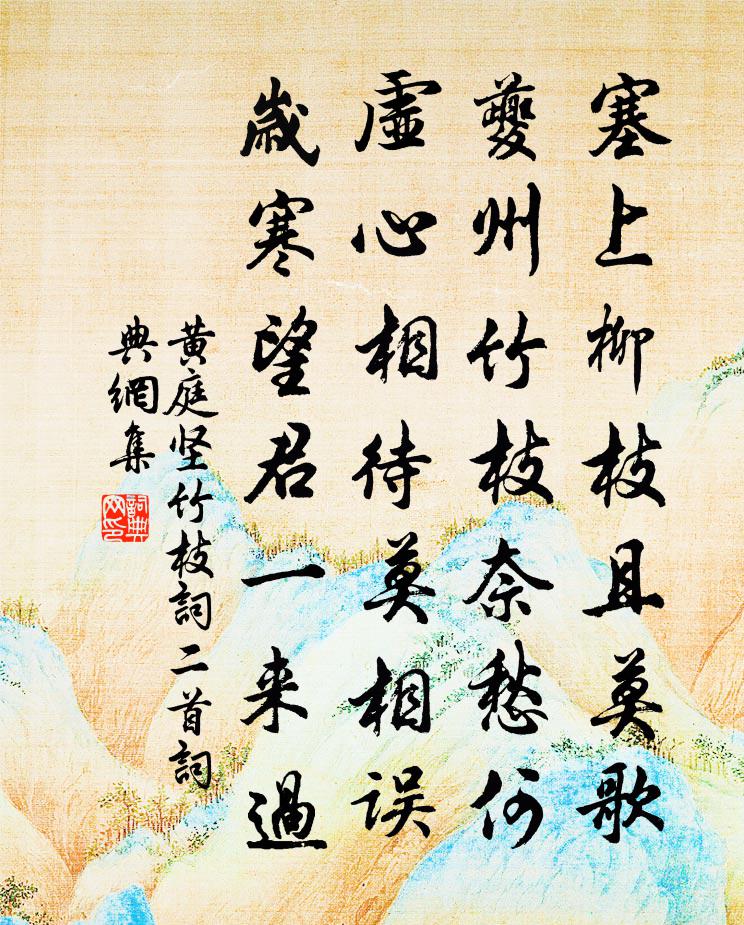 塞上柳枝且莫歌
夔州竹枝奈愁何
虛心相待莫相误
歲寒望君一来過
黄庭坚竹枝詞二首詞
典網集
詞典
网印